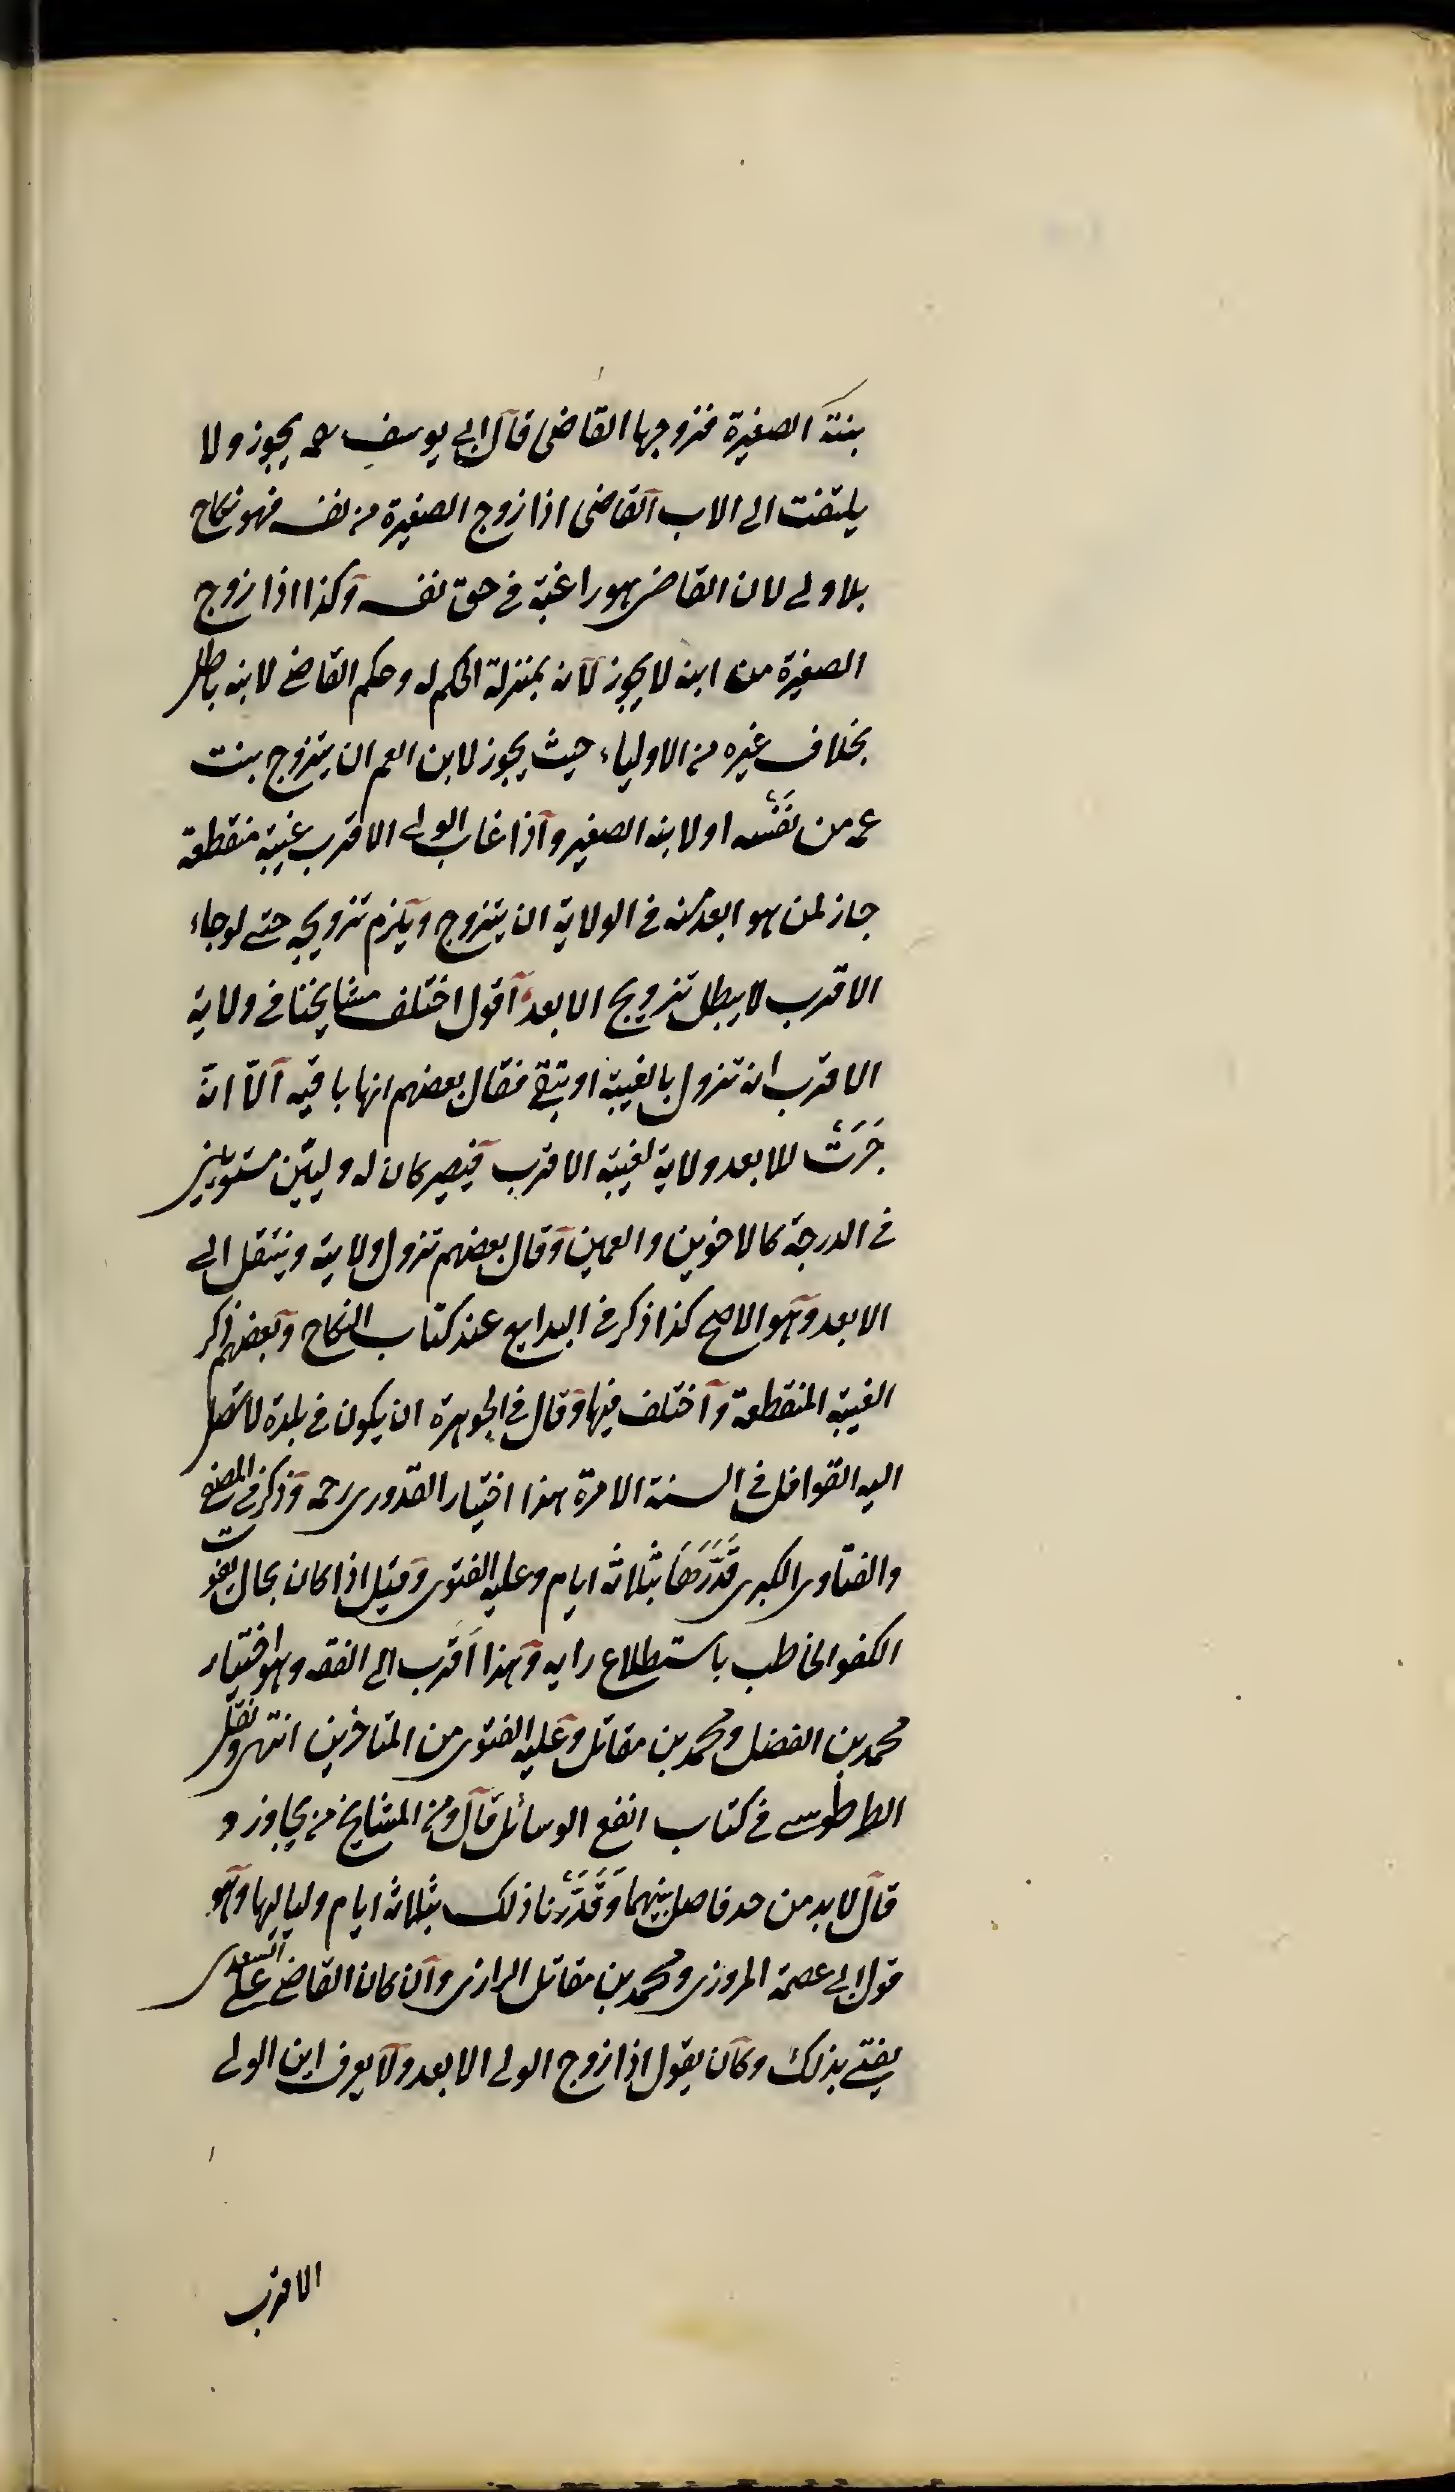 بنته الصغيرة فزوجها القاضى قال ابى يوسف رحمه يجوز ولا
يلتفت الى الاب القاضى اذا زوج الصغيرة من نفسه فهو نكاح
بلا ولى لان القاضى هو راغبة فى حق نفسه وكذا اذا زوج
الصغيرة من ابنه لا يجوز لانه بمنزلة الحكم له وحكم القاضى لابنه باطل
بخلاف غيره من الاولياء حيث يجوز لابن العم ان يتزوج بنت
عمه من نَفْسه او لابنه الصغير واذا غاب الولى الاقرب غيبة منقطعة
جاز لمن هو ابعد منه فى الولاية ان يتزوج ويلزم تزويجه حتى لو جاء
الاقرب لا يبطل تزويج الابعد اقول اختلف مشايخنا فى ولاية
الاقرب انه تزول بالغيبة او تبقى فقال بعضهم انها باقيه الّا انّه
جَرَتْ للابعد ولاية لغيبة الاقرب فيصير كان له وليين مستويين
فى الدرجة كالاخوين والعمين وقال بعضهم تزول ولايته وينتقل الى
الابعد وهو الاصح كذا ذكر فى البدايع عند كتاب النكاح وبعضهم ذكر
الغيبة المنقطعة واختلف فيها وقال فى الجوهرة ان يكون فى بلدة لا تصل
اليه القوافل فى السنة الا مرة هذا اختيار القدورى رحمه وذكر فى المصفى
والفتاوى الكبرى قَدَّرَهَا بثلاثة ايام وعليه الفتوى وقيل اذا كان بحال يفوت
الكفو الخاطب باستطلاع رايه وهذا اقرب الى الفقه وهو اختيار
محمد بن الفضل ومحمد بن مقاتل وعليه الفتوى من المتاخرين انتهى ونقل
الطرطوسى فى كتاب انفع الوسائل قال ومن المشايخ من يجاوز و
قال لا بد من حد فاصل بينهما وَقَدَّرْنا ذلك بثلاثة ايام ولياليها وهو
قول ابى عصمة المروزى ومحمد بن مقاتل الرازى وان كان القاضى على السعدى
يفتى بذلك وكان يقول اذا زوج الولى الابعد ولا يعرف اين الولى
الاقرب